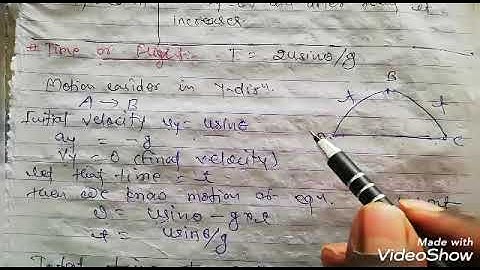 increases.
# Time of Flight:- T = 2usinθ/g
Motion easider in y-disn.
A → B
B
t
t
Initial velocity uy = usinθ
C
ay = -g
vy = 0 (final velocity)
let that time = t
then we know motion of eqn.
0 = usinθ - g×t
t = usinθ/g
Made with
VideoShow